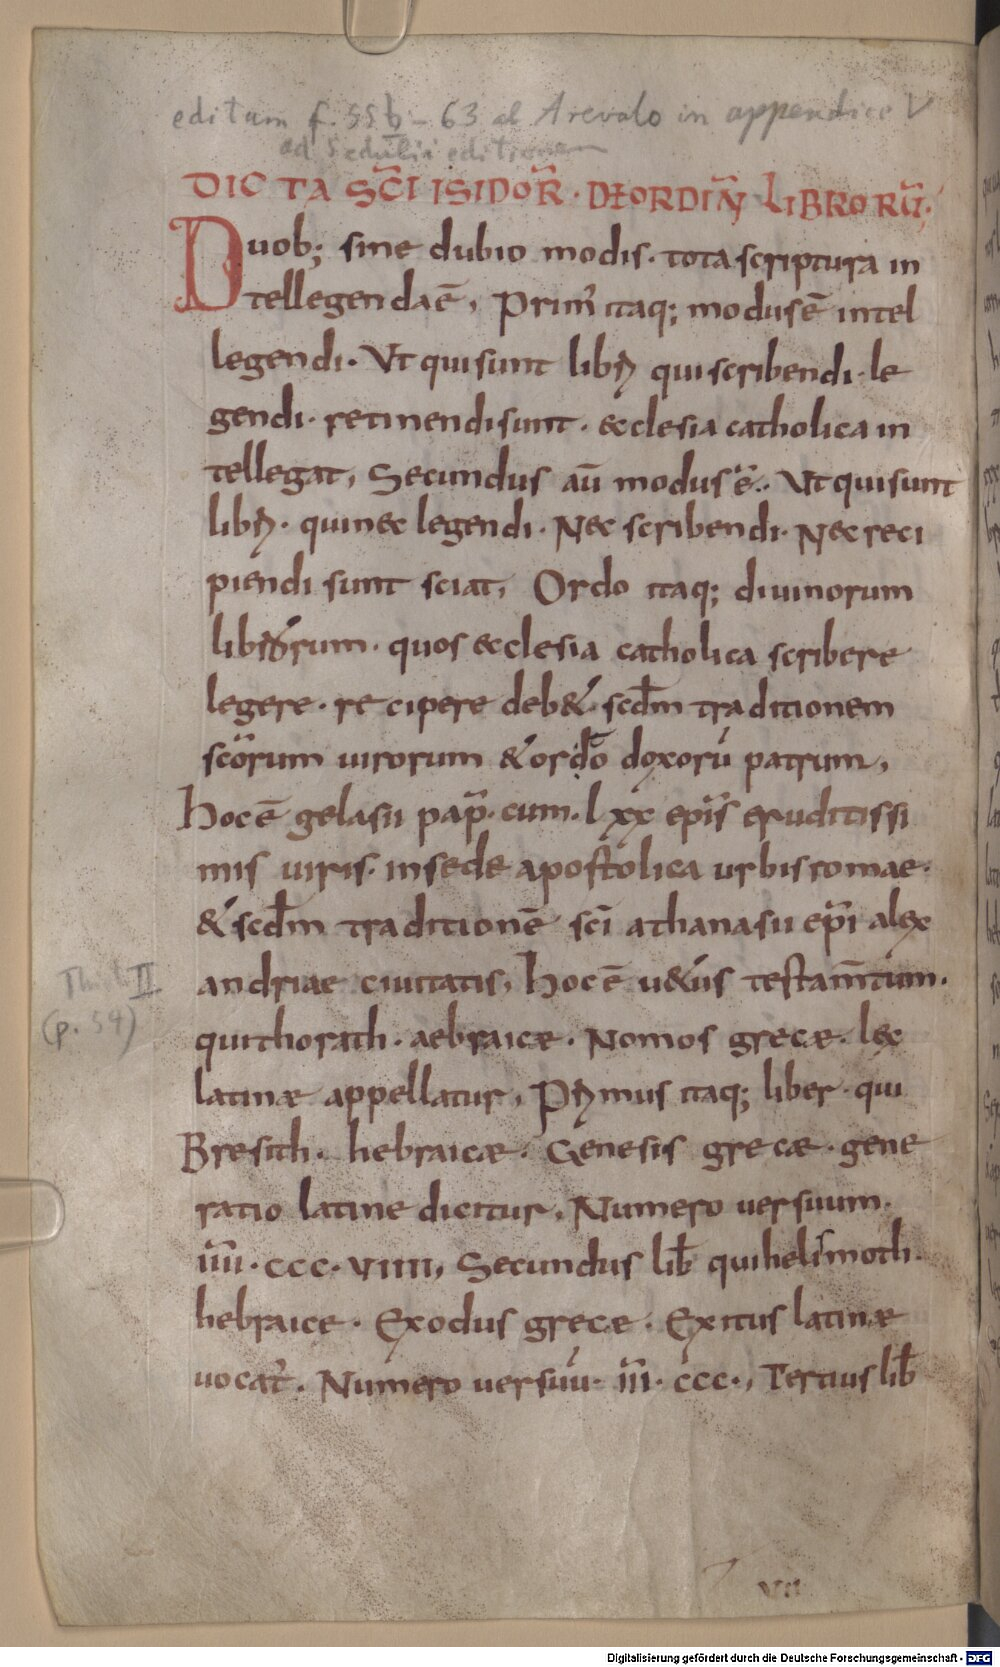 editum f. 55b - 63 al Arevalo in appendice V
ad Sedulii editionem
DICTA SC̄I ISIDOR̄· DE ORDIN̄ LIBRORŪ;
Duob; sine dubio modis· tota scriptura in
tellegenda ē, Prim' itaq; modus ē intel
legendi· Ut qui sunt libri qui scribendi· le
gendi· retinendi sunt· ecclesia catholica in
tellegat, Secundus aū modus ē·· Ut qui sunt
libri· qui nec legendi· Nec scribendi· Nec reci
piendi sunt sciat, Ordo itaq; diuinorum
librorum· quos ecclesia catholica scribere
legere· recipere deb&· scdm̄ traditionem
scōrum uirorum & ordo doxorū patrum,
Hoc ē gelasii pap̄· cum· lxx ep̄is eruditissi
mis uiris· in sede apostolica urbis romae·
& scdm̄ traditionē sc̄i athanasii ep̄i alex
andriae ciuitatis, Hoc ē u&us testam̄tum·
(p. 54)
qui thorath· aebraicæ· Nomos grecæ· lex
latinæ appellatur, Primus itaq; liber· qui
Bresith· hebraicæ· Genesis grecæ· gene
ratio latine dicitur, Numero uersuum·
īīīī· ccc· VIIII, Secundus lib̄ qui helismoth·
hebraice· Exodus grece· Exitus latinæ
uocat'· Numero uersuū· īīī· ccc·, Tertius lib̄
VII
Digitalisierung gefördert durch die Deutsche Forschungsgemeinschaft - DFG